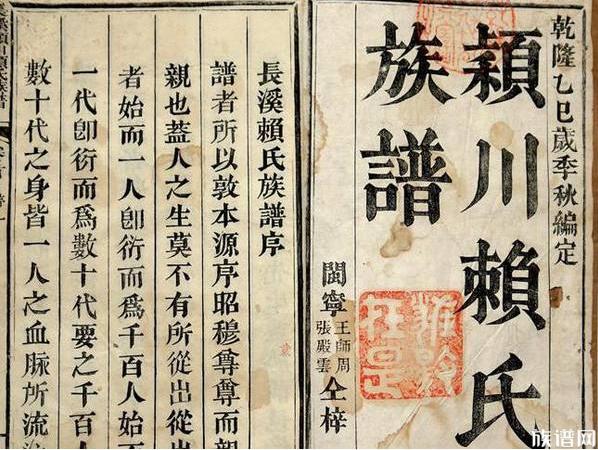 乾隆乙巳歲季秋編定
穎川賴氏
族譜
閩寧王師周張殿雲仝梓
長溪賴氏族譜序
譜者所以敦本源序昭穆尊尊而親
親也蓋人之生莫不有所從出從出
者始而一人卽衍而爲千百人始
一代卽衍而爲數十代要之千百人
數十代之身皆一人之血脈所流
族谱网